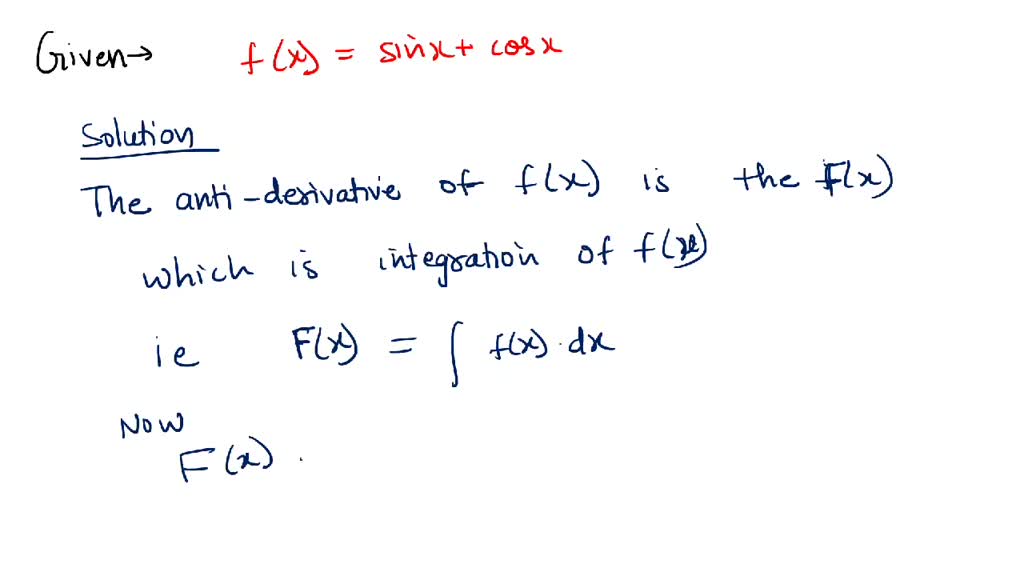 Given→ f(x) = sinx + cosx
Solution
The anti-derivative of f(x) is the F(x)
which is integration of f(x)
ie F(x) = ∫ f(x) · dx
Now
F(x)